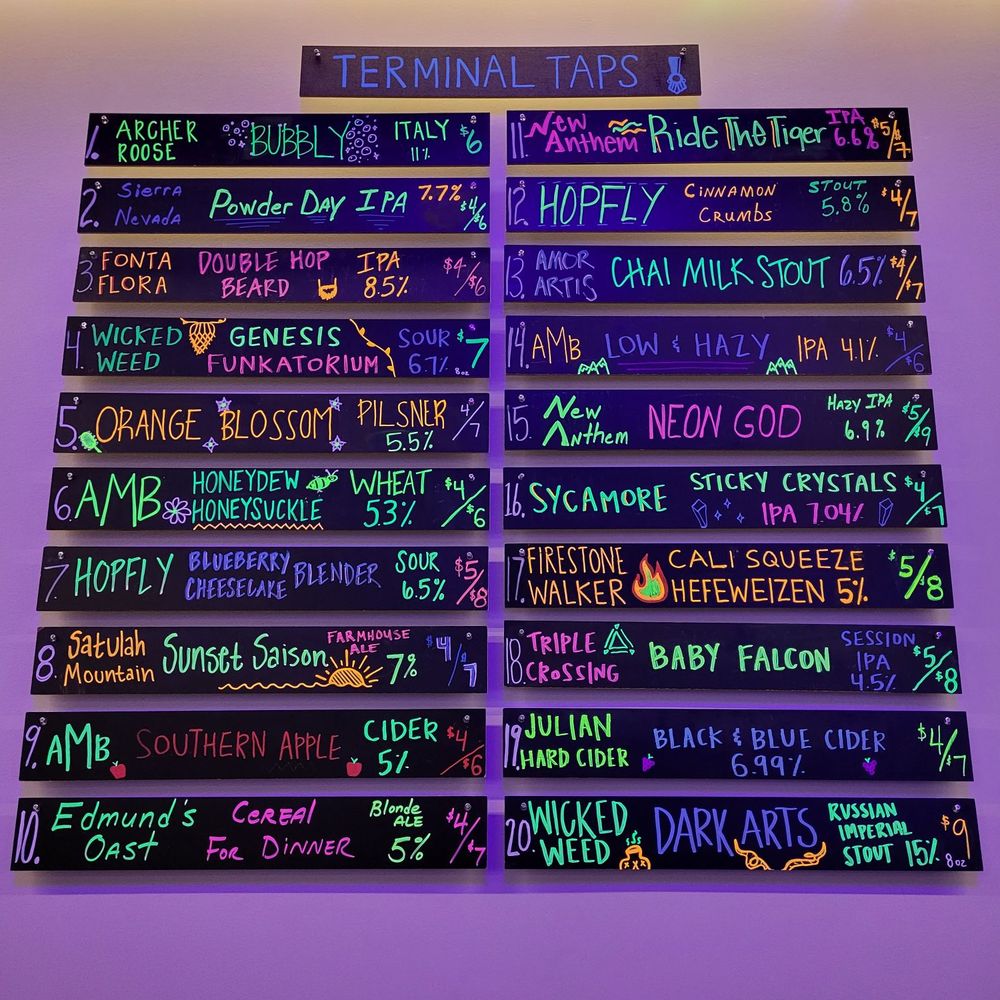 TERMINAL TAPS
1. ARCHER ROOSE BUBBLY ITALY 11% $6
2. Sierra Nevada Powder Day IPA 7.7% $4/$6
3. FONTA FLORA DOUBLE HOP BEARD IPA 8.5% $4/$6
4. WICKED WEED GENESIS FUNKATORIUM SOUR 6.7% $7 8oz
5. ORANGE BLOSSOM PILSNER 5.5% 4/7
6. AMB HONEYDEW HONEYSUCKLE WHEAT 5.3% $4/$6
7. HOPFLY BLUEBERRY CHEESECAKE BLENDER SOUR 6.5% $5/$8
8. Satulah Mountain Sunset Saison FARMHOUSE ALE 7% $4/7
9. AMB SOUTHERN APPLE CIDER 5% $4/$6
10. Edmund's Oast Cereal For Dinner Blonde ALE 5% $4/$7
11. New Anthem Ride The Tiger IPA 6.6% $5/$7
12. HOPFLY Cinnamon Crumbs STOUT 5.8% $4/7
13. AMOR ARTIS CHAI MILK STOUT 6.5% $4/$7
14. AMB LOW & HAZY IPA 4.1% $4/$6
15. New Anthem NEON GOD HAZY IPA 6.9% $5/$9
16. SYCAMORE STICKY CRYSTALS IPA 7.04% $4/$7
17. FIRESTONE WALKER CALI SQUEEZE HEFEWEIZEN 5% $5/$8
18. TRIPLE CROSSING BABY FALCON SESSION IPA 4.5% $5/$8
19. JULIAN HARD CIDER BLACK & BLUE CIDER 6.99% $4/$7
20. WICKED WEED DARK ARTS RUSSIAN IMPERIAL STOUT 15% $9 8oz